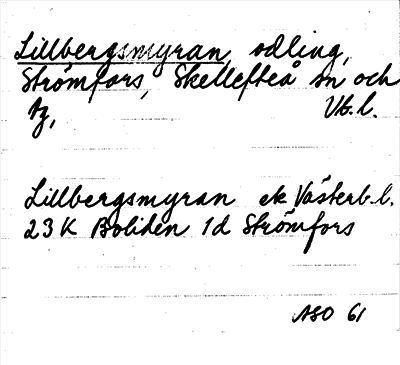 Lillbergsmyran, odling,
Strömfors, Skellefteå sn och
tg, Vb. l.
Lillbergsmyran ek Västerb. l.
23 K Boliden 1d Strömfors
ASO 61